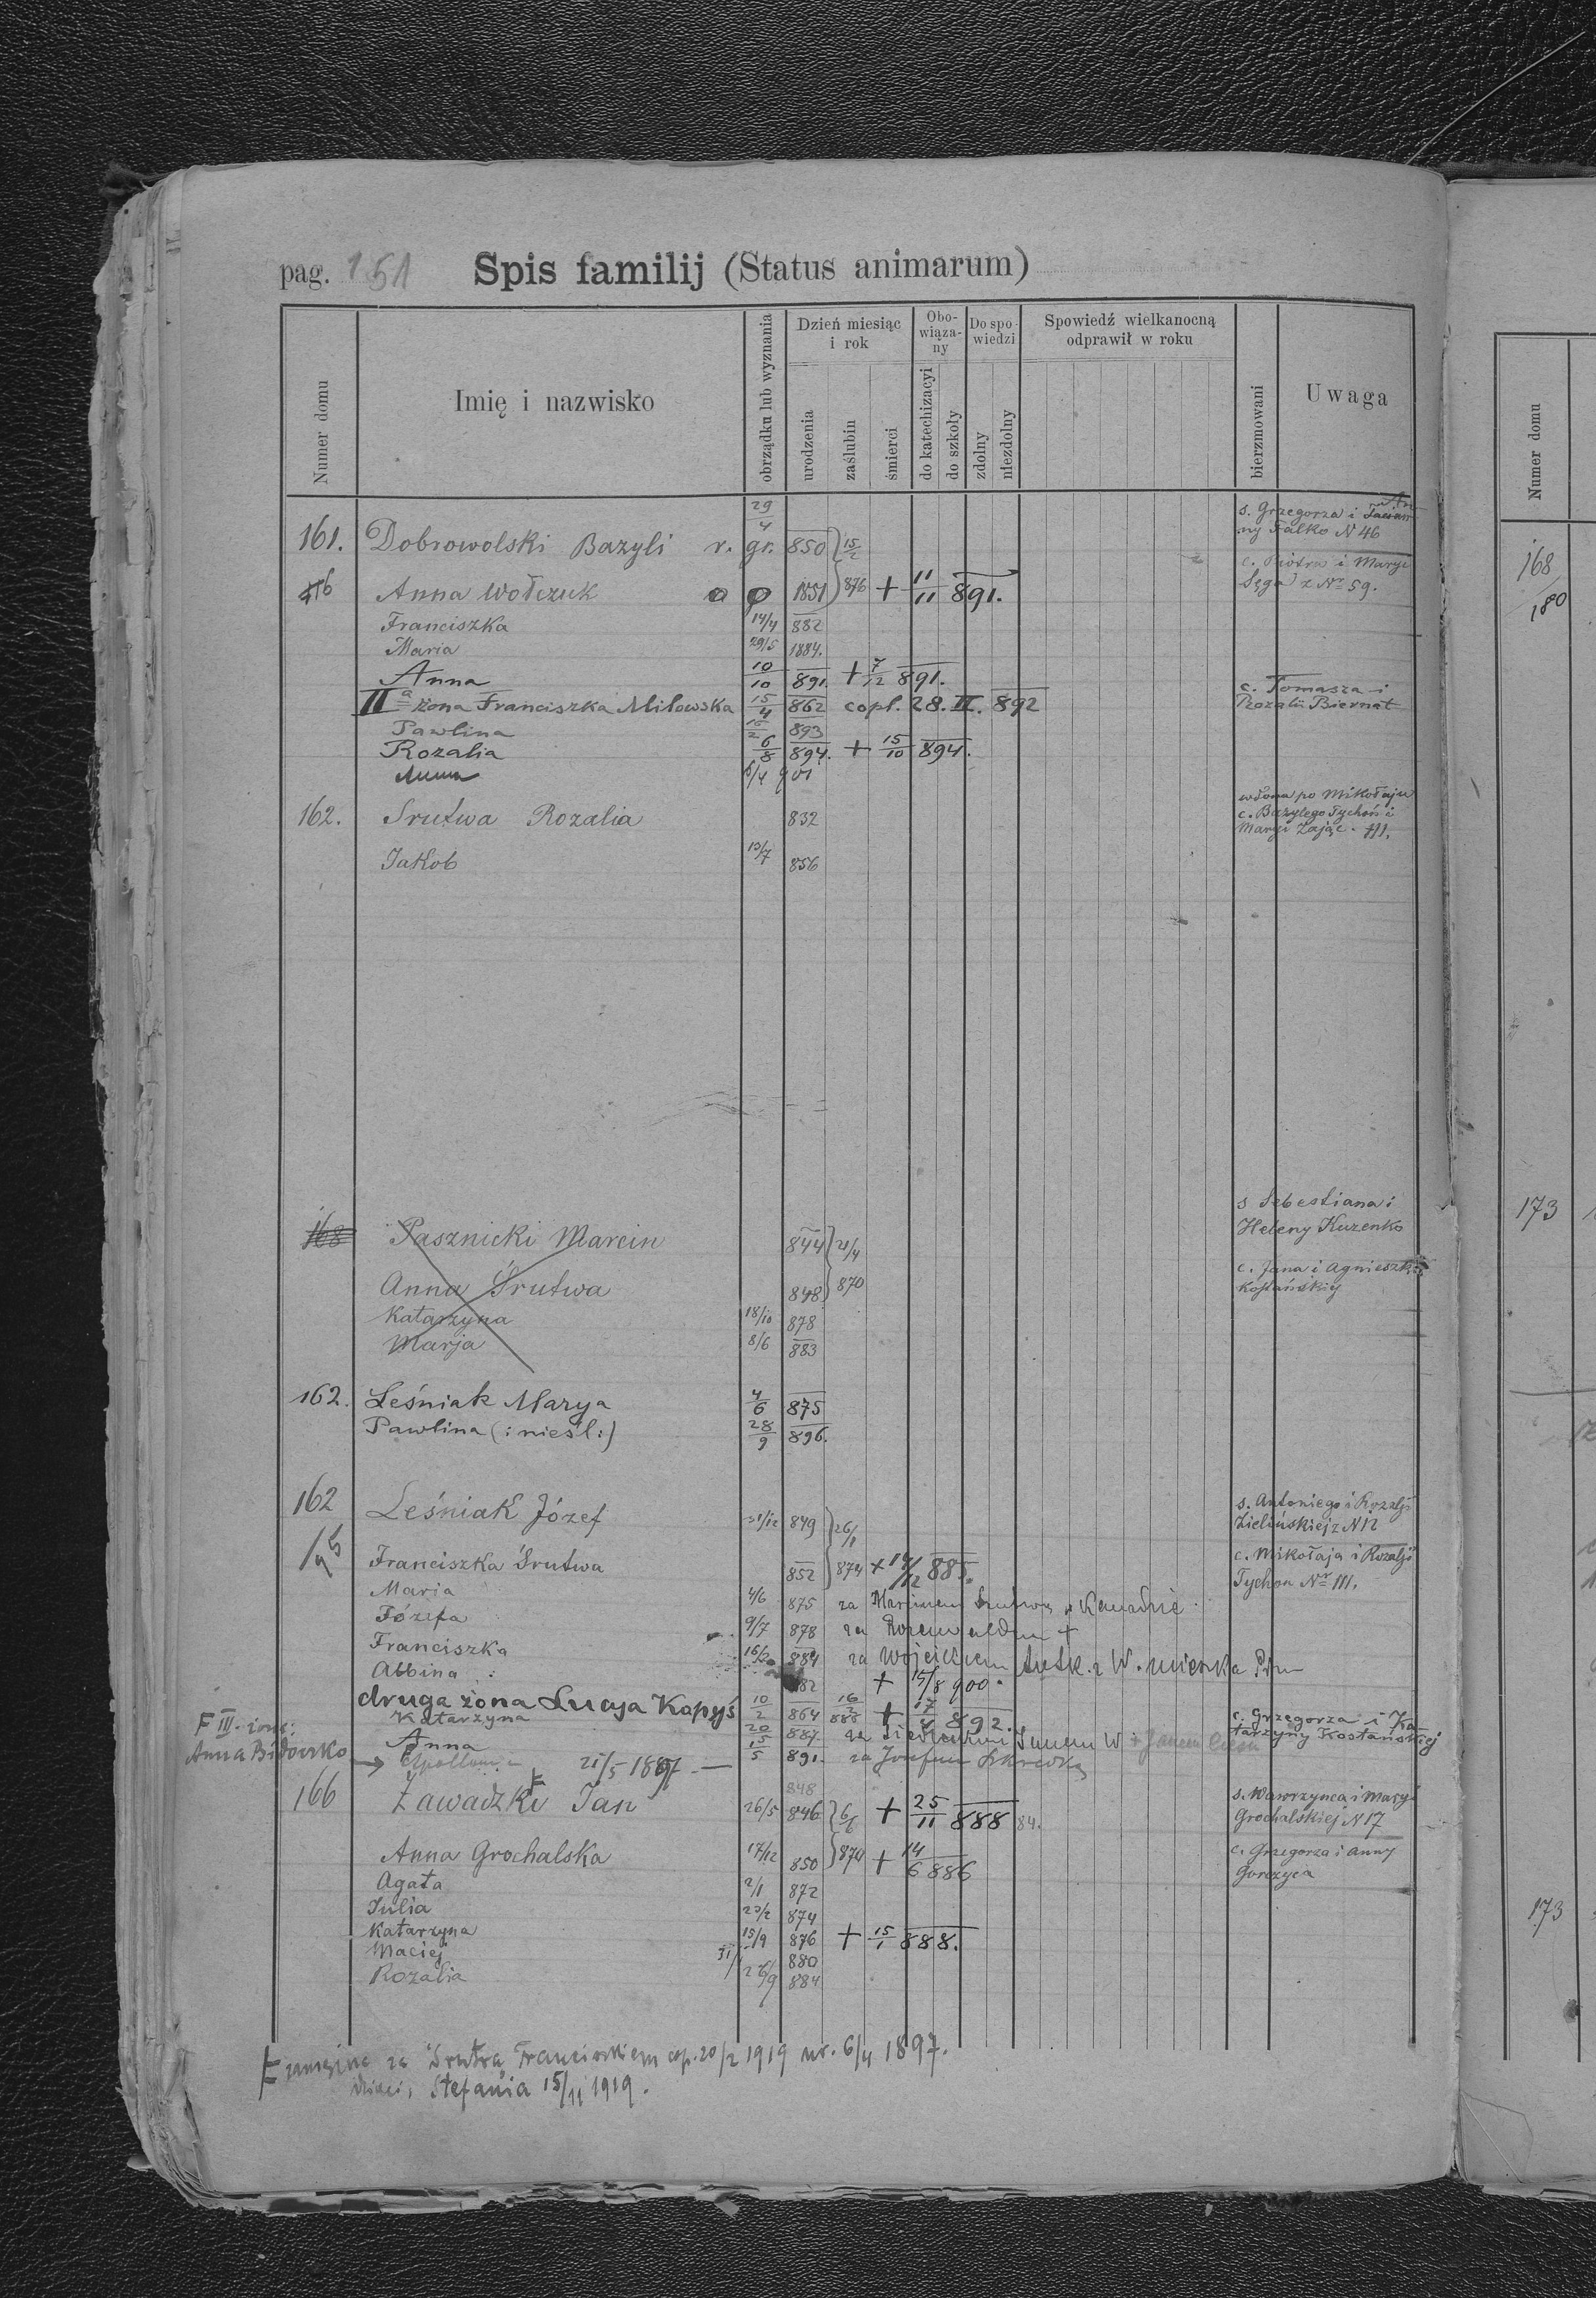 pag. 151 Spis familij (Status animarum)
Numer domu
Imię i nazwisko
obrządku lub wyznania
Dzień miesiąc i rok
urodzenia
zaślubin
śmierci
Obo-wiąza-ny
do katechizacyi
do szkoły
Do spo-wiedzi
zdolny
niezdolny
Spowiedź wielkanocną odprawił w roku
bierzmowani
Uwaga
161. Dobrowolski Bazyli r. gr. 29/4 850 15/2 s. Grzegorza i
ny Falko N 46
Anna Wołczuk 1851 876 + 11/11 891. c. Piotra i Maryi
Sęga z Nr 59.
Franciszka 14/4 882
Maria 29/5 1884.
Anna 10/10 891. + 7/12 891.
IIa żona Franciszka Milowska 15/4 862 copl. 28. II. 892 c. Tomasza i
Rozalii Biernat
Pawlina 893
Rozalia 6/8 894. + 15/10 894.
Anna 901
162. Srutwa Rozalia 832 wdowa po Mikołaju
c. Bazylego Tychoń i
Maryi Zając. 111.
Jakob 856
168 Pasznicki Marcin 844 21/4 s Sebestiana i
Heleny Kuzenko
Anna Śrutwa 848 870 c. Jana i Agnieszki
Kostańskiej
Katarzyna 18/10 878
Marja 8/6 883
162. Leśniak Marya 4/6 875
Pawlina (: nieśl :) 28/9 896.
162 Leśniak Józef 31/12 849 26/1 s. Antoniego i Rozalji
Zielińskiej z N 12
Franciszka Śrutwa 852 874 + 885. c. Mikołaja i Rozalji
Tychon Nr 111.
Maria 4/6 875 za
Józefa 9/7 878 za
Franciszka 884 za Wojciechem
Albina 82 + 15/8 900.
druga żona Lucya Kapyś 10/2 864 16/2 886 + 892. c. Grzegorza i Ka
tarzyny Kostańskiej
Katarzyna 20 887. za
F III. żona:
Anna Bidowsko
Anna 15/5 891. za Józefem
→ 21/5 1897 —
166 Zawadzki Jan 26/5 848 846 6/6 + 25/11 888 84. s. Wawrzyńca i Maryi
Grochalskiej N 17
Anna Grochalska 17/12 850 874 + 14/6 886 c. Grzegorza i Anny
Gorczyca
Agata 2/1 872
Julia 874
Katarzyna 15/9 876 + 15/1 888.
Maciej 880
Rozalia 26/9 884
zamężna za Śrutwą Franciszkiem cop. 20/2 1919 ur. 6/4 1897.
dzieci, Stefania 15/11 1919.
168
180
173
173
Numer domu